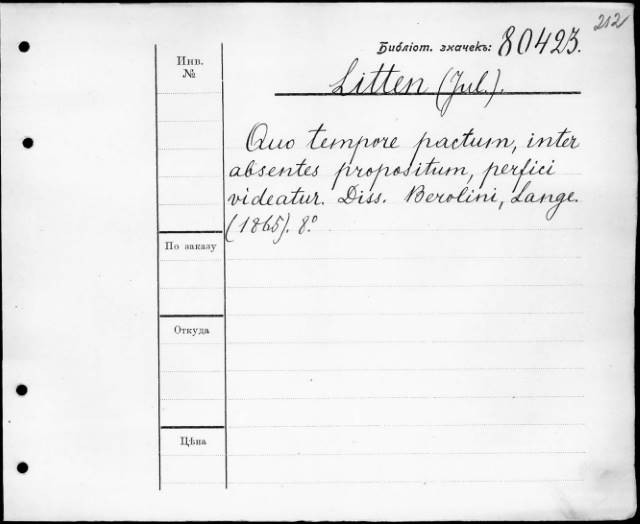 212
Библіот. значекъ: 80423.
Инв.
№
Litten (Jul.).
Quo tempore pactum, inter
absentes propositum, perfici
videatur. Diss. Berolini, Lange.
(1865). 8.º
По заказу
Откуда
Цѣна